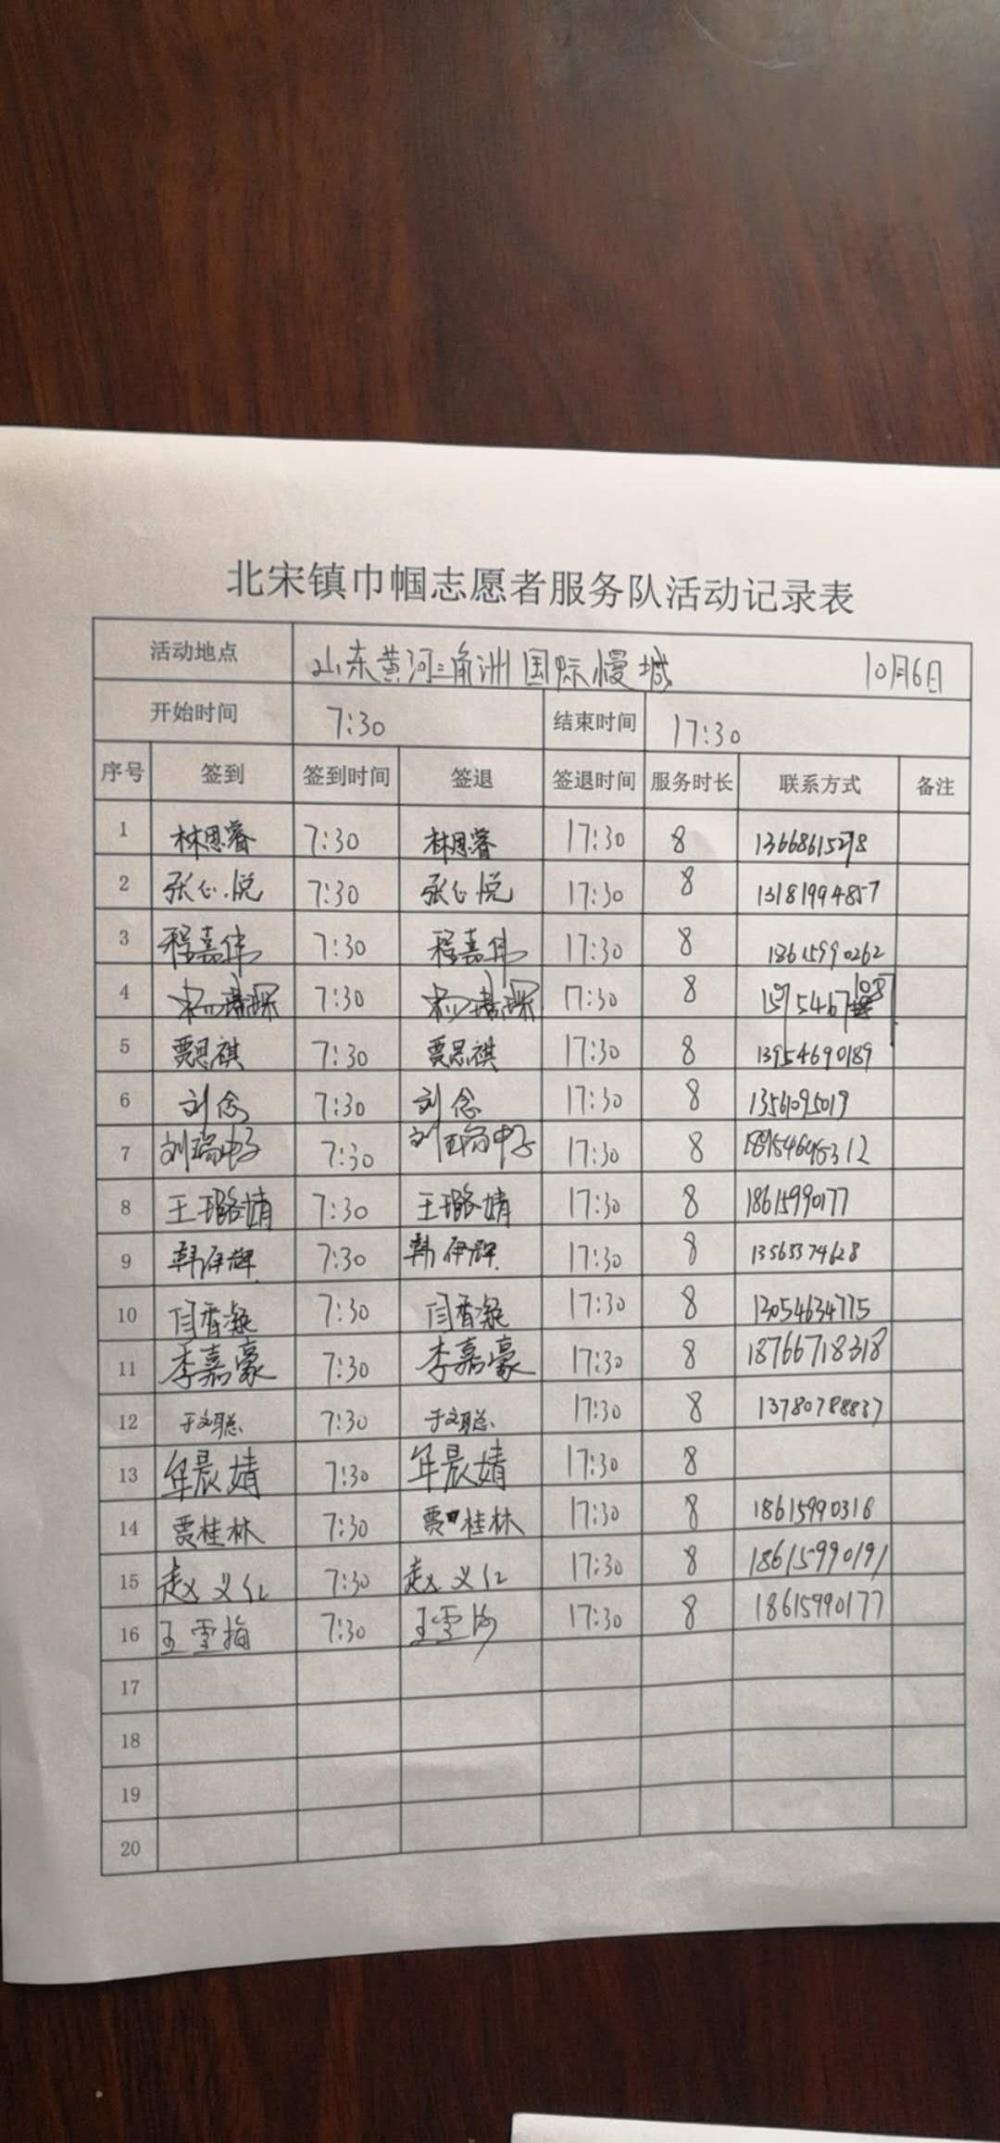 北宋镇巾帼志愿者服务队活动记录表
活动地点 山东黄河三角洲国际慢城 10月6日
开始时间 7:30 结束时间 17:30
序号 签到 签到时间 签退 签退时间 服务时长 联系方式 备注
1 林思睿 7:30 林思睿 17:30 8
2 张心悦 7:30 张心悦 17:30 8 13181994857
3 程嘉伟 7:30 程嘉伟 17:30 8 18615990262
4 7:30 17:30 8
5 贾思祺 7:30 贾思祺 17:30 8 13954690189
6 刘念 7:30 刘念 17:30 8 1356095019
7 7:30 17:30 8
8 王璐婧 7:30 王璐婧 17:30 8 18615990177
9 韩伊辉 7:30 韩伊辉 17:30 8 13563374628
10 闫香凝 7:30 闫香凝 17:30 8 13054634775
11 李嘉豪 7:30 李嘉豪 17:30 8 18766718318
12 于文聪 7:30 于文聪 17:30 8 13780788837
13 年晨婧 7:30 年晨婧 17:30 8
14 贾桂林 7:30 贾桂林 17:30 8 18615990316
15 赵义仁 7:30 赵义仁 17:30 8 18615990191
16 王雪梅 7:30 王雪梅 17:30 8 18615990177
17
18
19
20